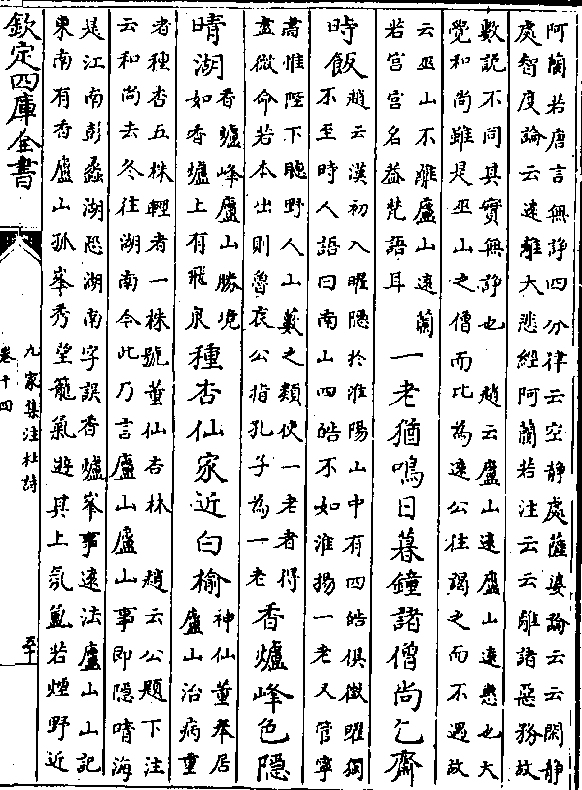 阿蘭若唐言無諍四分律云空靜處薩婆論云云閑靜
處智度論云遠離大悲經阿蘭若注云云離諸惡務故
數說不同其實無諍也　趙云廬山遠廬山遠憗也大
覺和尚雖是巫山之僧而比為遠公往謁之而不遇故
云巫山不離廬山遠　蘭
若宮宮名葢梵語耳
一老猶鳴日暮鐘諸僧尚乞齋
時飯
趙云漢初入曜隱於淮陽山中有四皓俱徵曜獨
不至時人語曰南山四皓不如淮揚一老又管寧
嵩惟陛下聽野人山藪之類使一老者得
盡微命若本出則魯哀公指孔子為一老
香爐峰色隱
晴湖
香爐峰廬山勝境
如香爐上有飛泉
種杏仙家近白榆
神仙董奉居
廬山治病重
者種杏五株輕者一株號董仙杏林　趙云公題下注
云和尚去冬往湖南今此乃言廬山廬山事即隱晴海
是江南彭蠡湖恐湖南字誤香爐峯事遠法廬山山記
東南有香廬山孤峯秀望籠氣遊其上氛氳若煙野近
欽定四庫全書
九家集注杜詩
卷十四